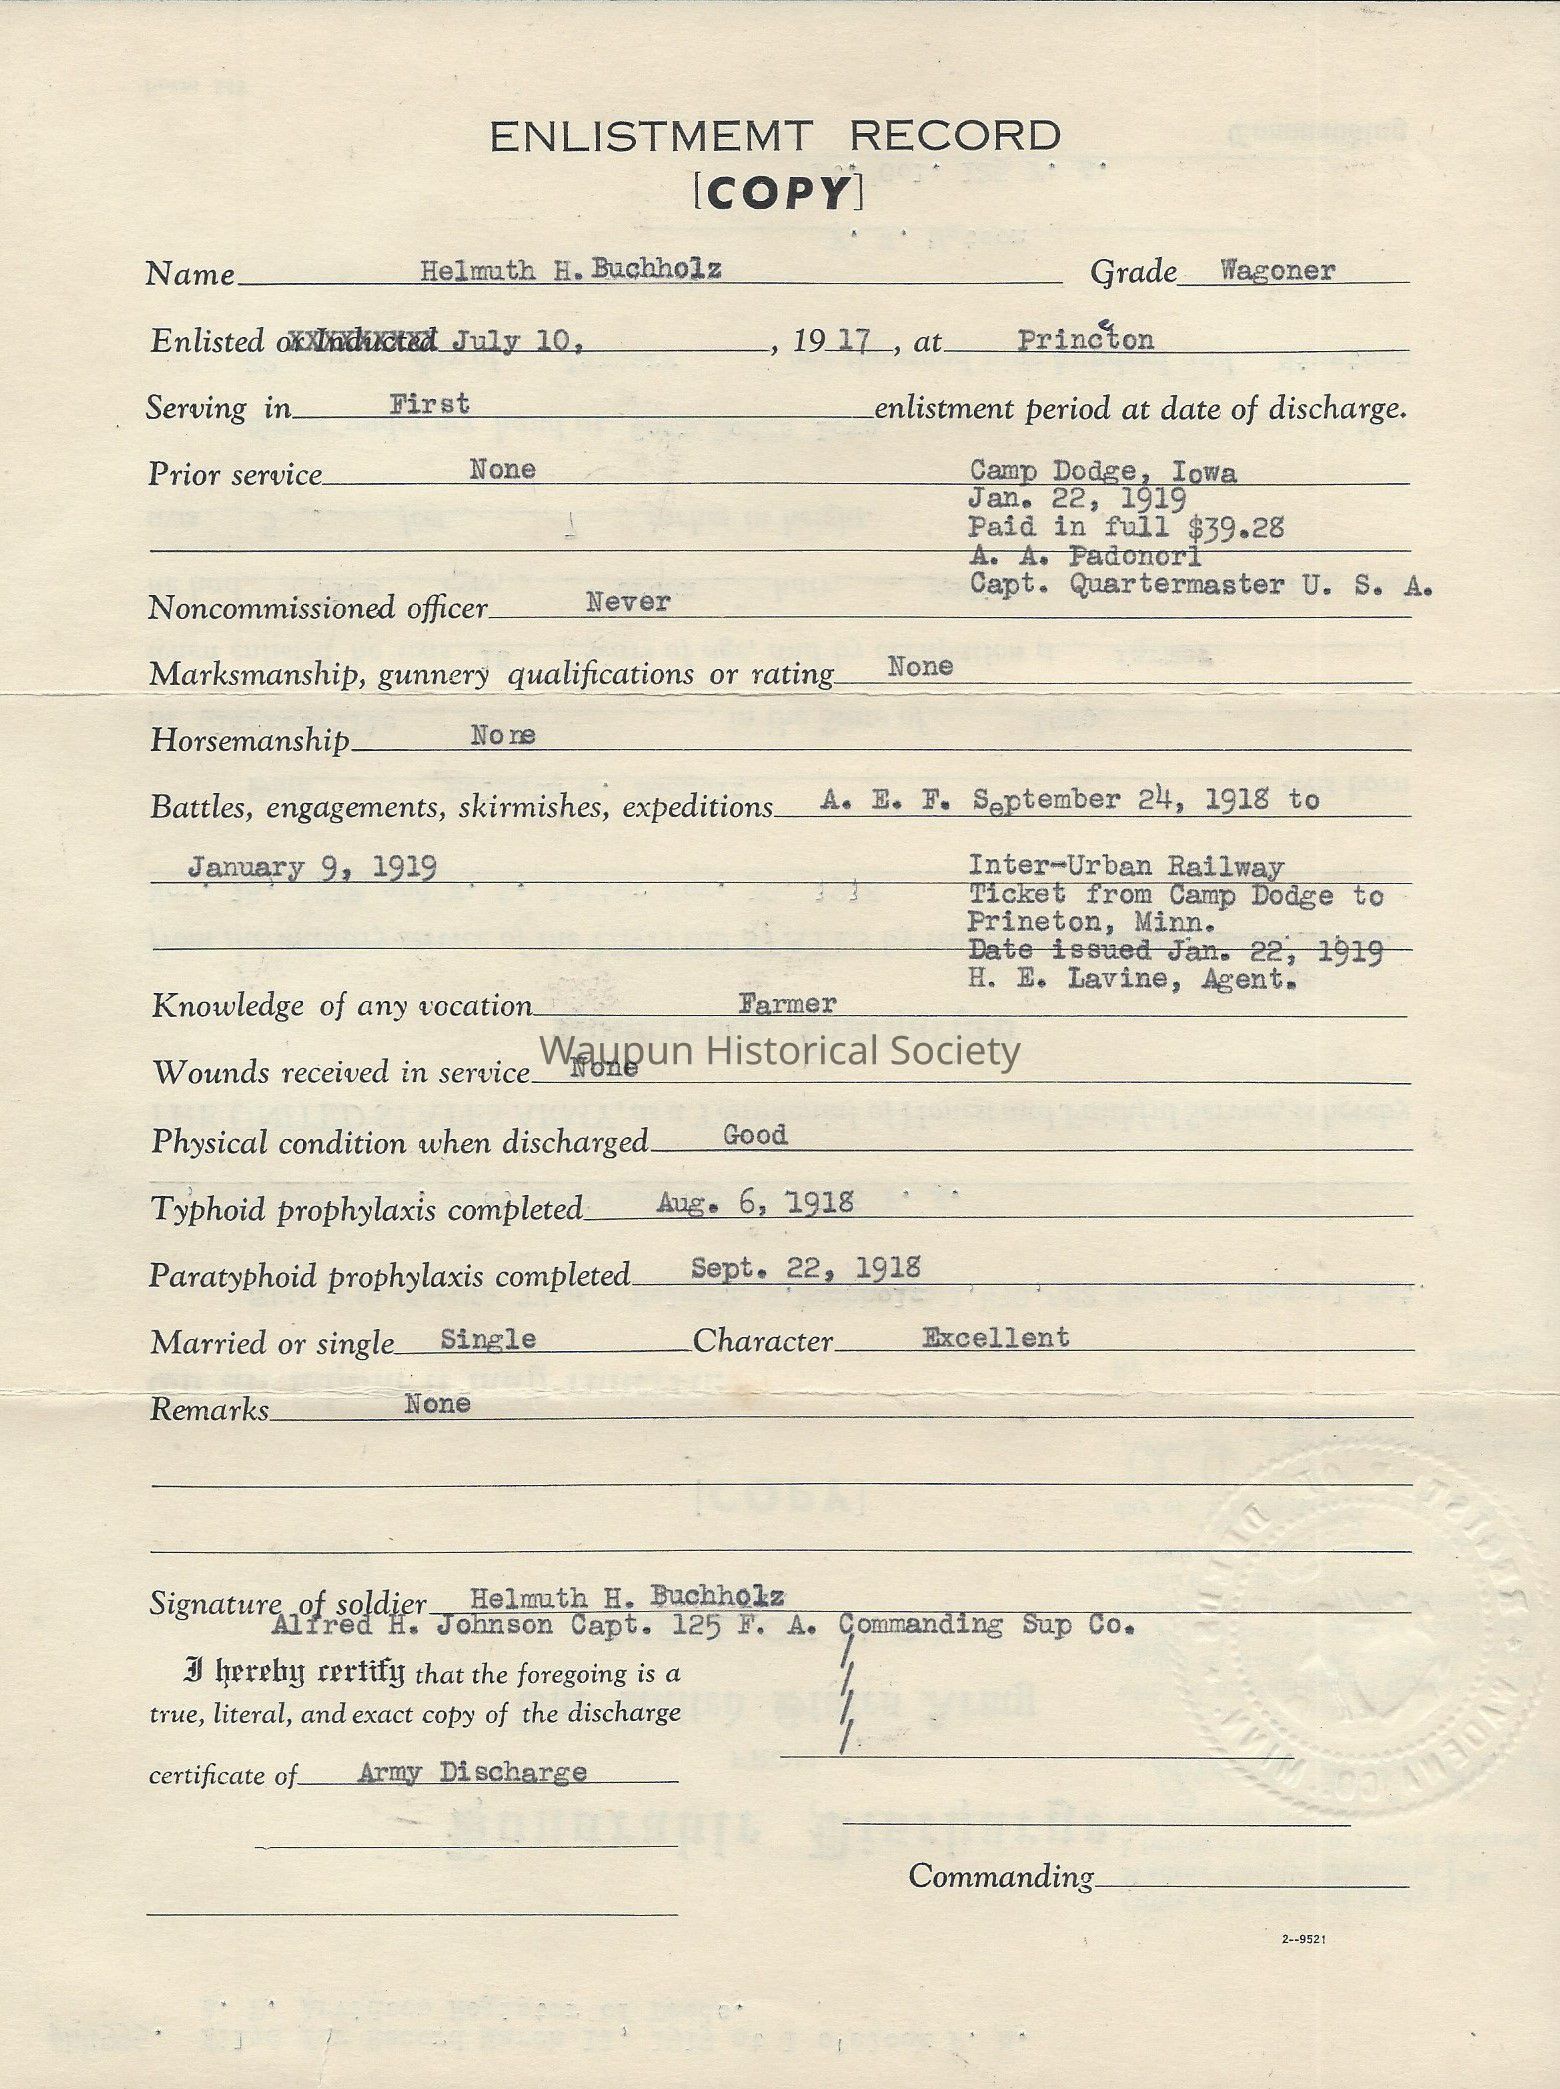 ENLISTMEMT RECORD
[COPY]
Name Helmuth H. Buchholz Grade Wagoner
Enlisted or Inducted July 10, , 19 17 , at Princeton
Serving in First enlistment period at date of discharge.
Prior service None Camp Dodge, Iowa
Jan. 22, 1919
Paid in full $39.28
A. A. Padonorl
Capt. Quartermaster U. S. A.
Noncommissioned officer Never
Marksmanship, gunnery qualifications or rating None
Horsemanship None
Battles, engagements, skirmishes, expeditions A. E. F. September 24, 1918 to
January 9, 1919 Inter-Urban Railway
Ticket from Camp Dodge to
Prineton, Minn.
Date issued Jan. 22, 1919
H. E. Lavine, Agent.
Knowledge of any vocation Farmer
Waupun Historical Society
Wounds received in service None
Physical condition when discharged Good
Typhoid prophylaxis completed Aug. 6, 1918
Paratyphoid prophylaxis completed Sept. 22, 1918
Married or single Single Character Excellent
Remarks None
Signature of soldier Helmuth H. Buchholz
Alfred H. Johnson Capt. 125 F. A. Commanding Sup Co.
I hereby certify that the foregoing is a
true, literal, and exact copy of the discharge
certificate of Army Discharge
Commanding
2--9521